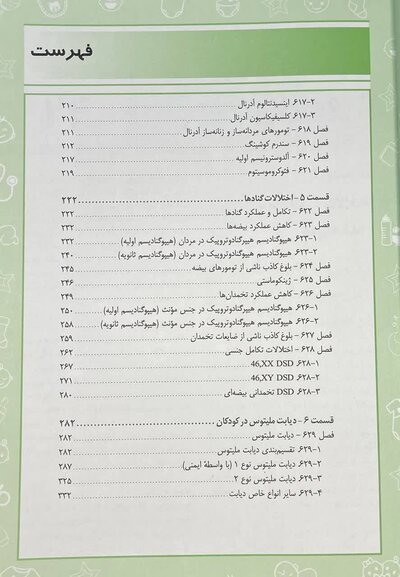 فهرست
۶۱۷-۲. اینسیدنتالوم آدرنال ۲۱۰
۶۱۷-۳. کلسیفیکاسیون آدرنال ۲۱۱
فصل ۶۱۸ - تومورهای مردانه‌ساز و زنانه‌ساز آدرنال ۲۱۱
فصل ۶۱۹ - سندرم کوشینگ ۲۱۲
فصل ۶۲۰ - آلدوسترونیسم اولیه ۲۱۷
فصل ۶۲۱ - فئوکروموسیتوم ۲۱۹
قسمت ۵ - اختلالات گنادها ۲۲۲
فصل ۶۲۲ - تکامل و عملکرد گنادها ۲۲۲
فصل ۶۲۳ - کاهش عملکرد بیضه‌ها ۲۳۲
۶۲۳-۱. هیپوگنادیسم هیپرگنادوتروپیک در مردان (هیپوگنادیسم اولیه) ۲۳۲
۶۲۳-۲. هیپوگنادیسم هیپوگنادوتروپیک در مردان (هیپوگنادیسم ثانویه) ۲۴۰
فصل ۶۲۴ - بلوغ کاذب ناشی از تومورهای بیضه ۲۴۵
فصل ۶۲۵ - ژینکوماستی ۲۴۶
فصل ۶۲۶ - کاهش عملکرد تخمدان‌ها ۲۴۹
۶۲۶-۱. هیپوگنادیسم هیپرگنادوتروپیک در جنس مؤنث (هیپوگنادیسم اولیه) ۲۵۰
۶۲۶-۲. هیپوگنادیسم هیپوگنادوتروپیک در جنس مؤنث (هیپوگنادیسم ثانویه) ۲۵۸
فصل ۶۲۷ - بلوغ کاذب ناشی از ضایعات تخمدان ۲۵۹
فصل ۶۲۸ - اختلالات تکامل جنسی ۲۶۲
۶۲۸-۱. 46,XX DSD ۲۶۷
۶۲۸-۲. 46,XY DSD ۲۷۱
۶۲۸-۳. DSD تخمدانی بیضه‌ای ۲۸۰
قسمت ۶ - دیابت ملیتوس در کودکان ۲۸۲
فصل ۶۲۹ - دیابت ملیتوس ۲۸۲
۶۲۹-۱. تقسیم‌بندی دیابت ملیتوس ۲۸۲
۶۲۹-۲. دیابت ملیتوس نوع ۱ (با واسطهٔ ایمنی) ۲۸۷
۶۲۹-۳. دیابت ملیتوس نوع ۲ ۳۲۵
۶۲۹-۴. سایر انواع خاص دیابت ۳۳۲